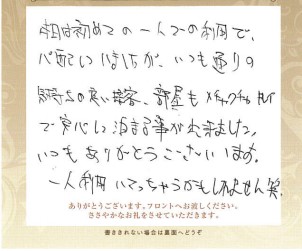 今回は初めての一人での利用で、
心配していましたが、いつも通りの
気持ちの良い接客、部屋もメチャクチャ
で安心して泊まる事が出来ました。
いつもありがとうございます。
一人利用 しちゃうかもしれません笑
ありがとうございます。フロントへお渡しください。
ささやかなお礼をさせていただきます。
書ききれない場合は裏面へどうぞ